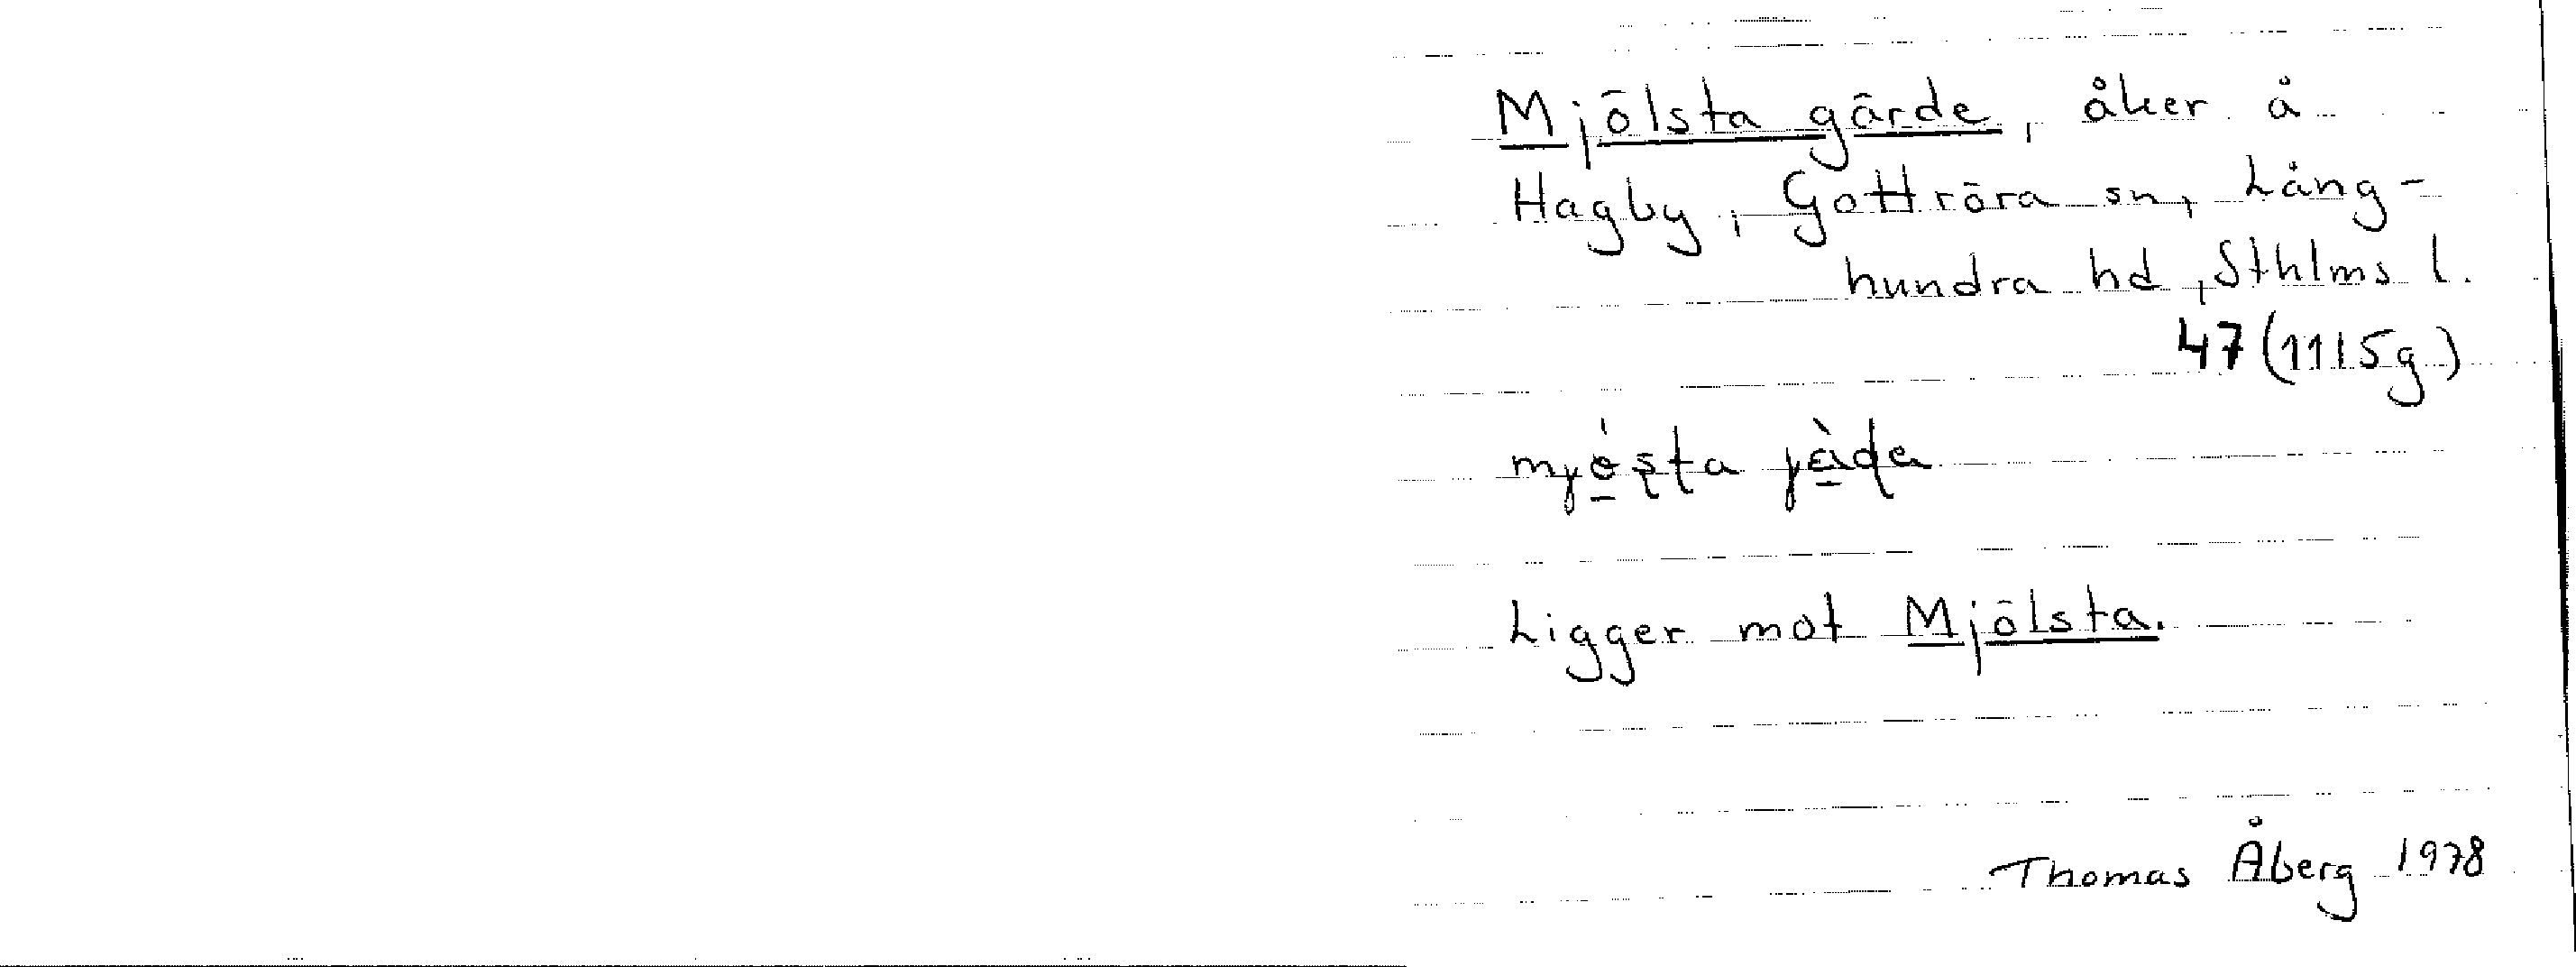 Mjölsta gärde, åker å
Hagby, Gottröra sn, Lång-
hundra hd, Sthlms l.
47 (1115g)
Ligger mot Mjölsta.
Thomas Åberg 1978